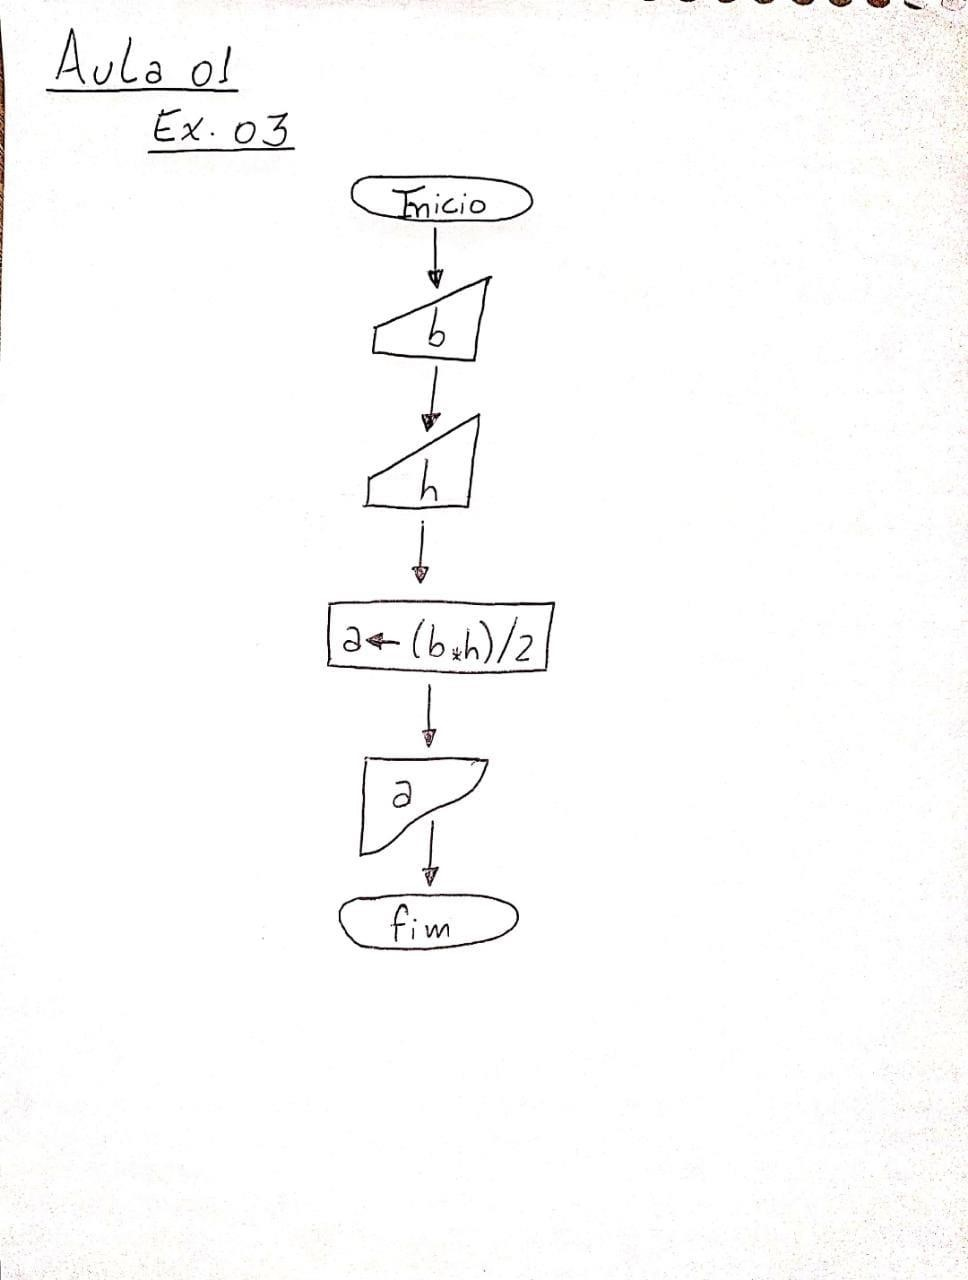 Aula 01
Ex. 03
Inicio
b
h
a ← (b*h)/2
a
fim